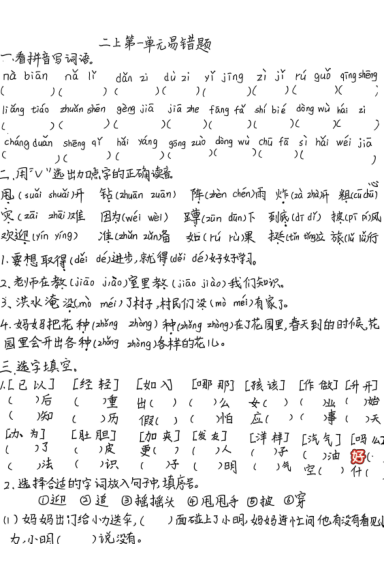 二上第一单元易错题
一.看拼音写词语。
nǎ biān nǎ lǐ dǎn zi dù zi yǐ jīng zì jǐ rú guǒ qīng shēng
( )( )( )( )( )( )( )( )
liǎng tiáo zhuǎn shēn gèng jiā jiā zhe fāng fǎ shí bié dòng wù hái zi
( )( )( )( )( )( )( )( )
cháng duǎn shēng qì hǎi yáng gōng zuò dòng wù chū fā sì hǎi wéi jiā
( )( )( )( )( )( )( )
二.用"√"选出加点字的正确读音。
甩(suǎi shuǎi)开 钻(zhuān zuān) 阵(zhèn chén)雨 炸(zà zhà)开 粗(cū
灾(zāi zhāi)难 因为(wéi wèi) 蹲(zūn dūn)下 到底(dǐ dǐ) 披(pī pī)风
欢迎(yín yíng) 准(zhǔn zǔn)备 如(rú rù)果
1.要想取得(děi dé)进步,就得(děi dé)好好学习。
2.老师在教(jiāo jiào)室里教(jiāo jiào)我们知识。
3.洪水淹没(mò méi)了村子,村民们没(mò méi)有家了。
4.妈妈把花种(zhǒng zhòng)种(zhǒng zhòng)在了花园里,春天到的时候,花
园里会开出各种(zhǒng zhòng)各样的花儿。
三.选字填空。
1.[已以] [经轻] [如入] [哪那] [孩该] [作做] [升开]
( )后 ( )重 出( ) ( )么 女( ) ( )业 ( )始
( )知 ( )历 假( ) ( )怕 应( ) ( )事 ( )天
[办、为] [肚胆] [加夹] [发友] [洋样] [汽气] [吗么]
( )了 ( )皮 更( ) ( )人 ( )子 ( )油 好
( )法 ( )识 ( )子 ( )明 ( )气 空( ) 什(
2.选择合适的字词放入句子中,填序号。
①迎 ②追 ③摇摇头 ④甩甩手 ⑤披 ⑥穿
(1)妈妈出门给小力送伞,( )面碰上了小明,妈妈连忙问他有没有看见小
力,小明( )说没有。